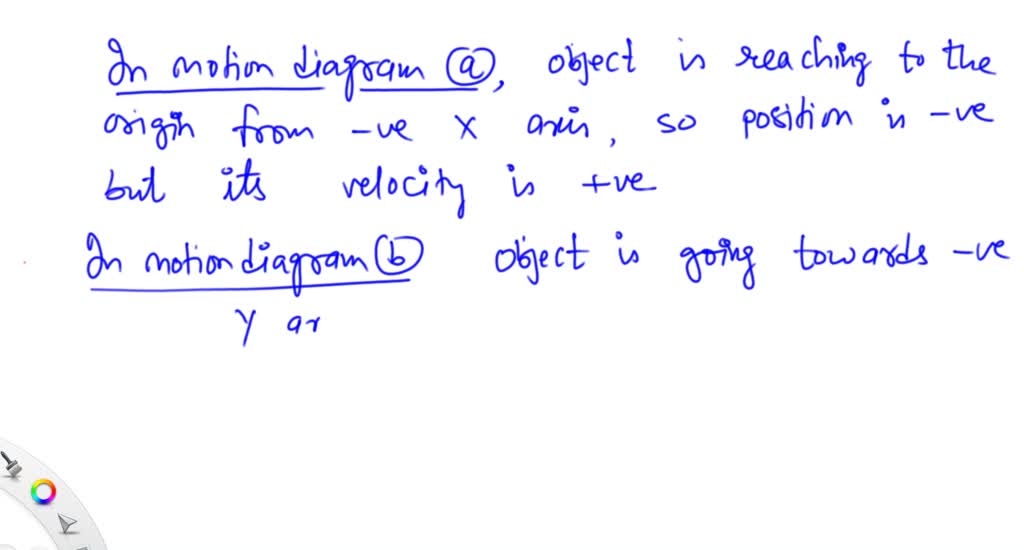 In motion diagram (a), object is reaching to the
origin from -ve X axis, so position is -ve
but its velocity is +ve
In motion diagram (b) object is going towards -ve
Y ax